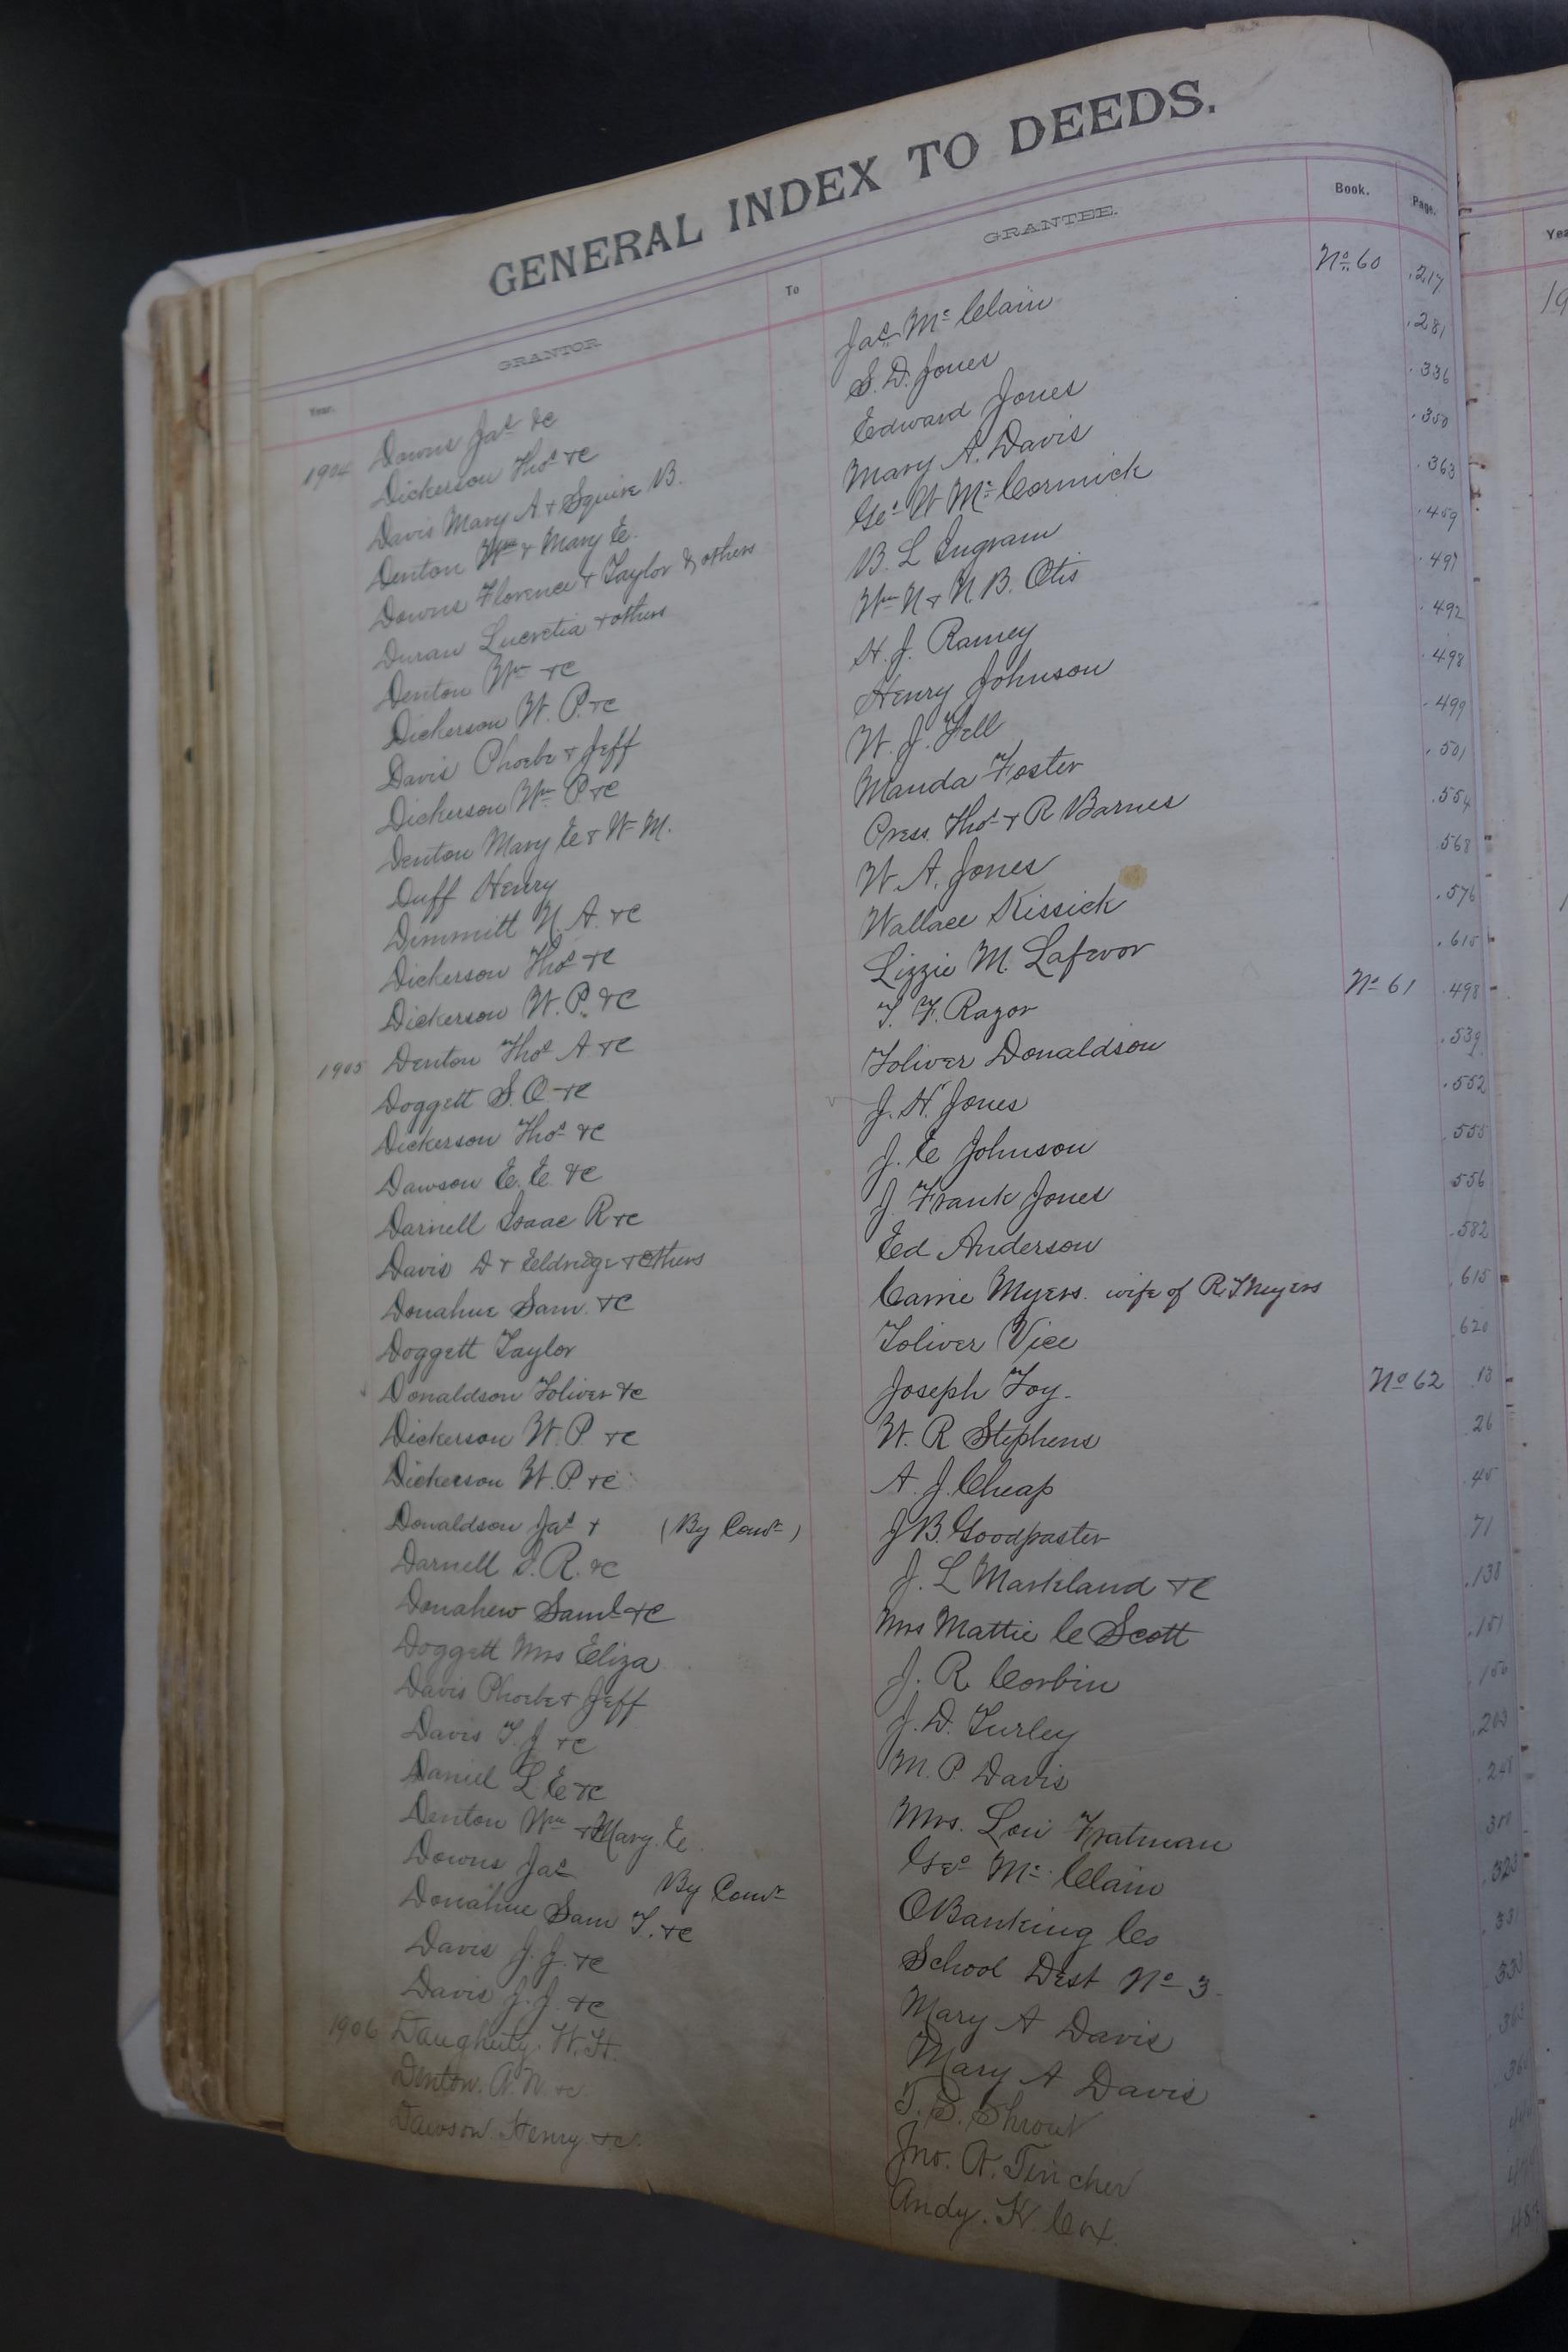 GENERAL INDEX TO DEEDS.
Year. GRANTOR To GRANTEE. Book. Page.
1904 Downs Jas &c Jas McClain No 60 217
Dickerson Thos &c S. D. Jones 281
Davis Mary A & Squire B. Edward Jones 336
Denton Wm & Mary E. Mary A. Davis 350
Downs Florence & Taylor & others Geo W McCormick 363
Duran Lucretia & others B. L Ingram 459
Denton Wm &c Wm N & N. B. Otis 491
Dickerson W. P. &c H. J. Ramey 492
Davis Phoebe & Jeff Henry Johnson 498
Dickerson Wm P &c W. J. Fell 499
Denton Mary E & W M. Manda Foster 501
Duff Henry Press Thos & R Barnes 554
Dimmitt N. A. &c W. A. Jones 568
Dickerson Thos &c Wallace Kissick 576
Dickerson W. P. &c Lizzie M. Lafevor 615
1905 Denton Thos A &c T. F. Razor No 61 498
Doggett S. O. &c Toliver Donaldson 539
Dickerson Thos &c J. H. Jones 552
Dawson E. E. &c J. E Johnson 555
Darnell Isaac R &c J. Frank Jones 556
Davis D & Eldridge & others Ed Anderson 582
Donahue Sam. &c Carrie Myers. wife of R. T Meyers 615
Doggett Taylor Toliver Vice 620
Donaldson Toliver &c Joseph Toy. No 62 13
Dickerson W. P &c W. R Stephens 26
Dickerson W. P. &c A. J. Cheap 45
Donaldson Jas & (By Comr) J B. Goodpaster 71
Darnell I. R. &c J. L Markland &c 138
Donahew Saml &c Mrs Mattie C Scott 151
Doggett Mrs Eliza J. R Corbin 156
Davis Phoebe & Jeff J. D. Turley 203
Davis T. J &c M. P. Davis 248
Daniel L. E &c Mrs. Lou Fratman 311
Denton Wm & Mary. E. Geo McClain 323
Downs Jas By Comr O Banking Co 331
Donahue Sam T. &c School Dist No 3. 333
Davis J. J. &c Mary A Davis
Davis J. J. &c Mary A Davis
1906 Daugherty. W. H. T. S. Shrout
Denton. A. N. &c. Jno. A. Tincher
Dawson Henry &c. Andy. K. Cox.